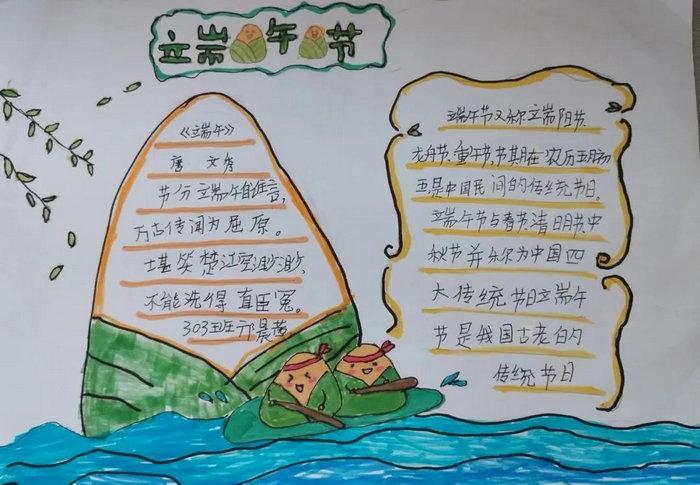 端午节
《端午》
唐 文秀
节分端午自谁言,
万古传闻为屈原。
堪笑楚江空渺渺,
不能洗得直臣冤。
303班
端午节又称端阳节、
龙舟节、重午节,节期在农历五月初
五是中国民间的传统节日。
端午节与春节、清明节、中
秋节并称为中国四
大传统节日端午
节是我国古老的
传统节日